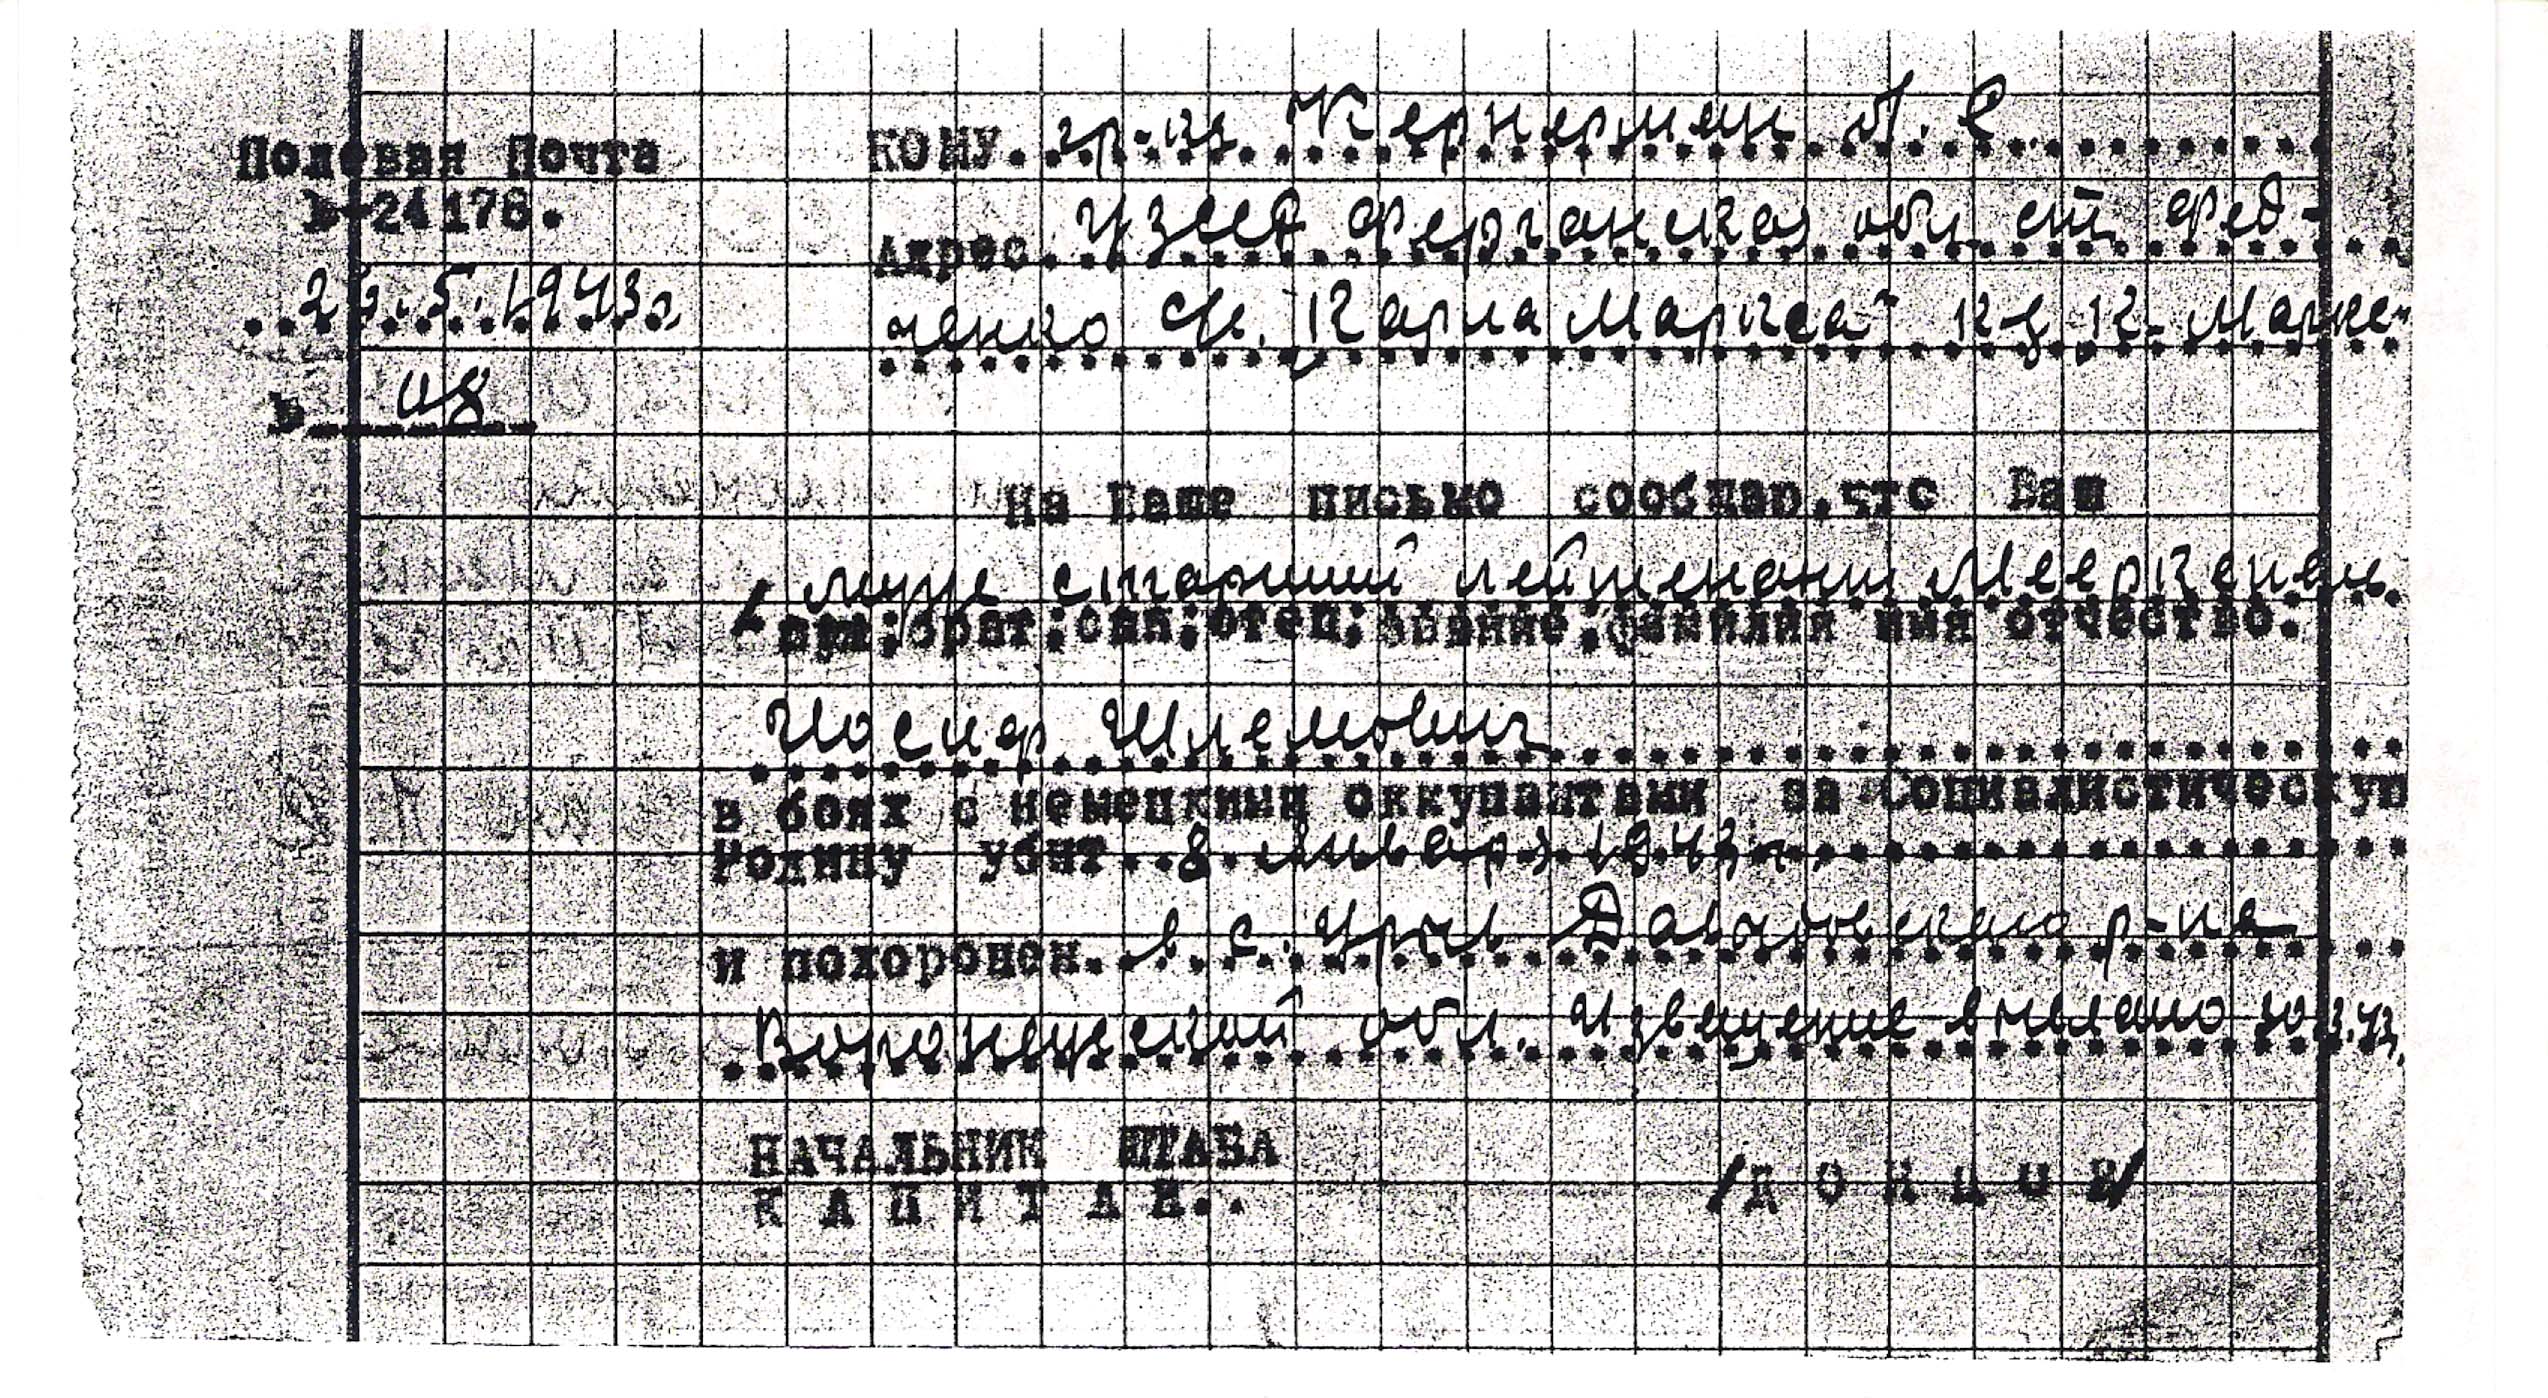 Полевая Почта
№ 24178.
25.5.1943г.
№ 08
КОМУ. гр-ка Кернерман П. Е
Адрес. Узсср Ферганская обл. ст. Фед-
ченко с/х. "Карла Маркса" к-з К. Маркс
На Ваше письмо сообщаю, что Ваш
муж старший лейтенант
/ муж; брат; сын; отец; звание; фамилия имя отчество.
Иосиф Шлемович
в боях с немецкими оккупантами за Социалистическую
Родину убит. 8. января 1943 г.
и похоронен. в с. Урыв Давыдовского р-на
Воронежской обл. Извещение выслано 30.3.43.
НАЧАЛЬНИК ШТАБА
КАПИТАН..
/ДОНЦОВ/